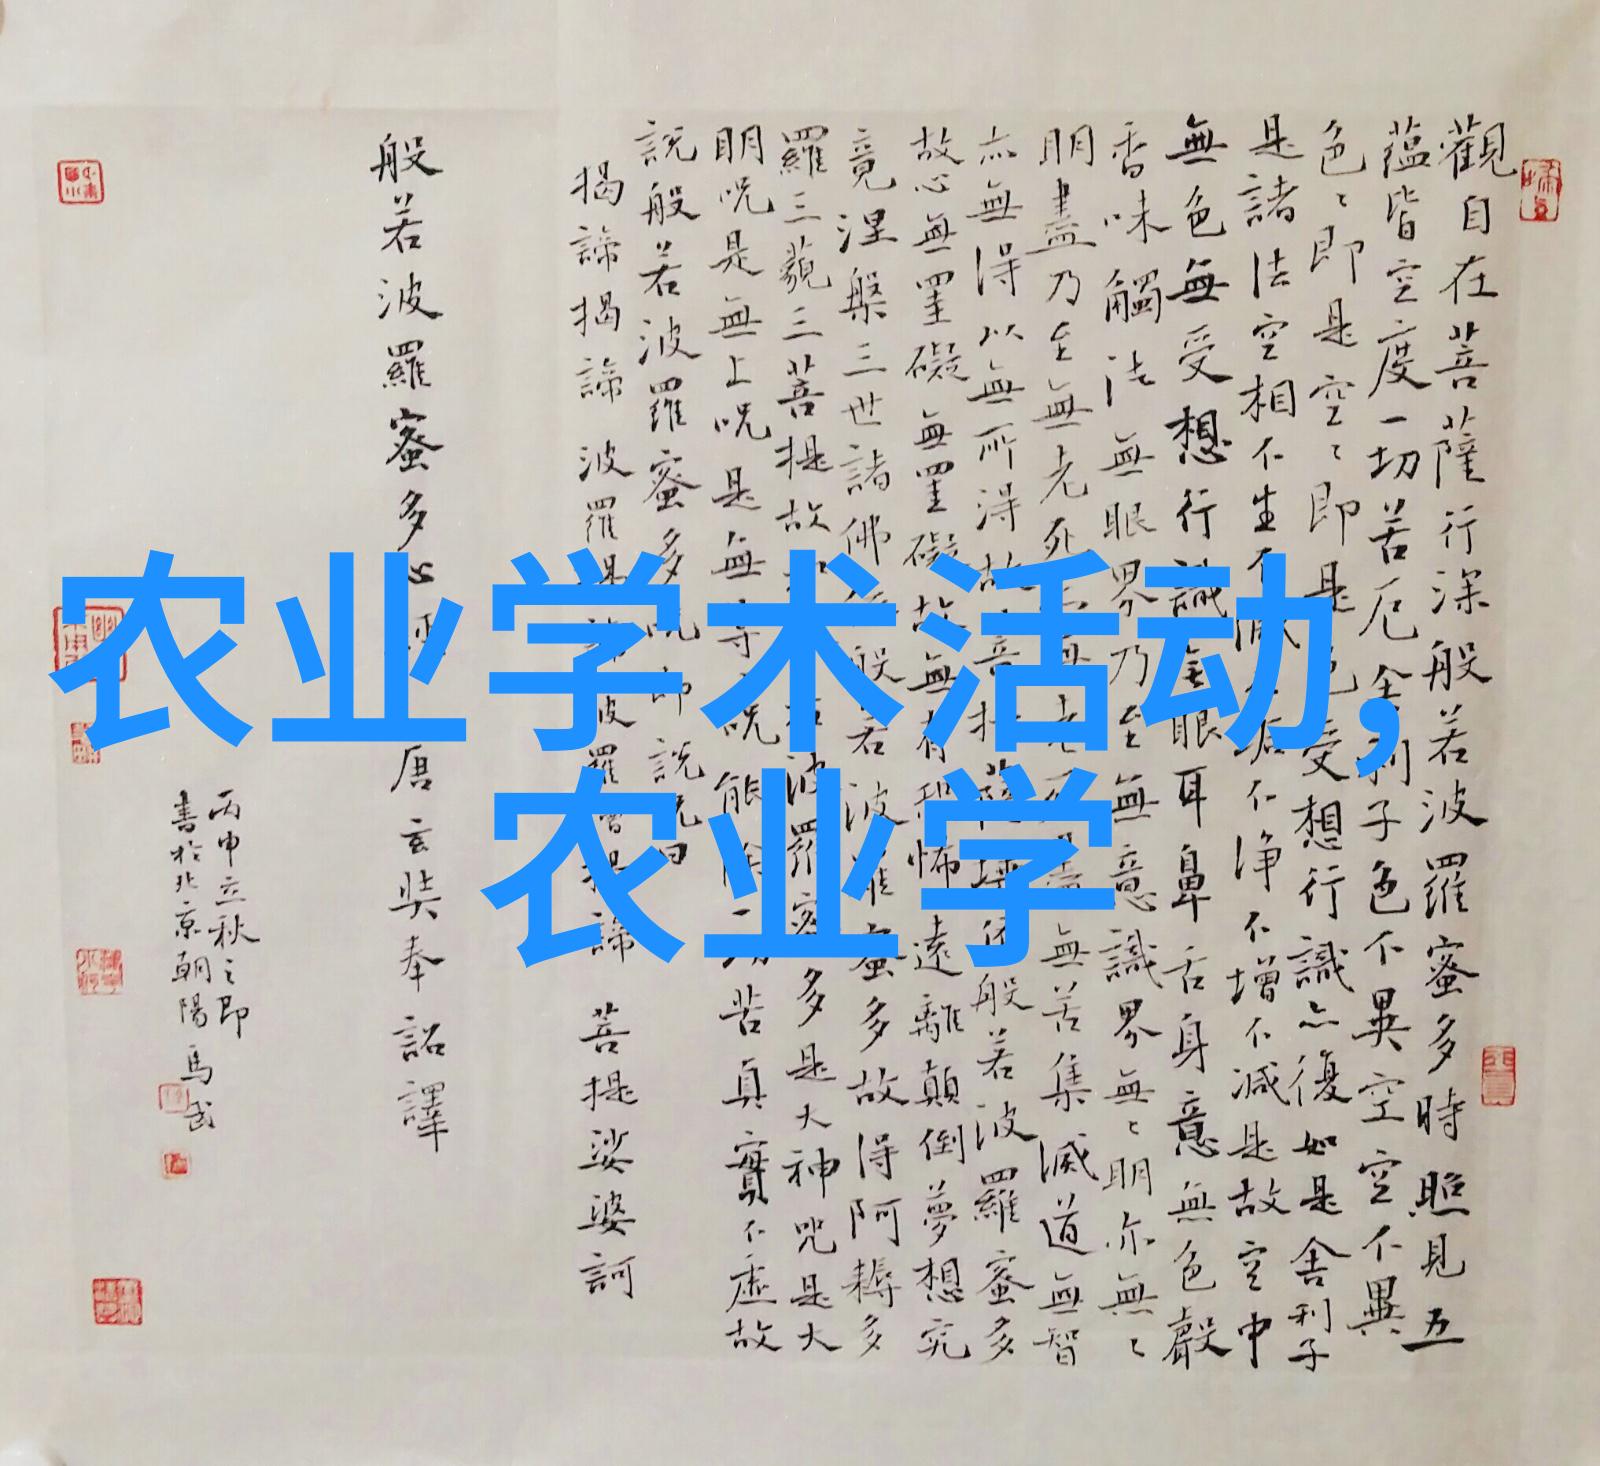 农业学术活动,
农业学
觀自在菩薩行深般若波羅蜜多時照見五
蘊皆空度一切苦厄舍利子色不異空空不異
色〻即是空〻即是色受想行識亦復如是舍利子
是諸法空相不生不滅不垢不净不增不減是故空中
無色無受想行識無眼耳鼻舌身意無色聲
香味觸法無眼界乃至無意識界無〻明亦無〻
明盡乃至無老死亦無老死盡無苦集滅道無智
亦無得以無所得故菩提薩埵依般若波羅蜜多
故心無罣礙無罣礙故無有恐怖遠離顛倒夢想究
竟涅槃三世諸佛依般若波羅蜜多故得阿耨多
羅三藐三菩提故若波羅蜜多是大神咒是大
明呪是無上呪是無等呪能除一切苦真實不虛故
說般若波羅蜜多呪即說呪曰
揭諦揭諦 波羅揭諦 波羅僧揭諦 菩提娑婆訶
般若波羅蜜多心經 唐玄奘奉詔譯
丙申立秋之即
書於北京朝陽 馬武